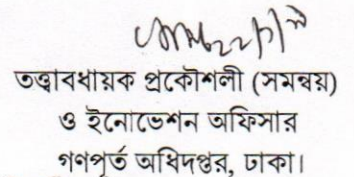 তত্ত্বাবধায়ক প্রকৌশলী (সমন্বয়)
ও ইনোভেশন অফিসার
গণপূর্ত অধিদপ্তর, ঢাকা।